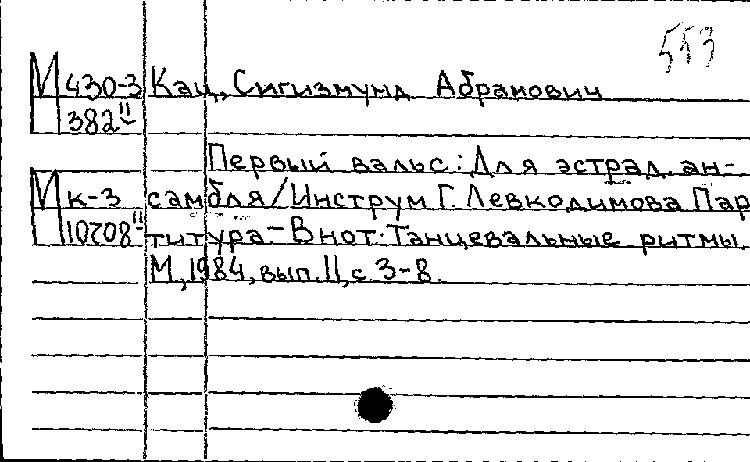 553
М 430-3 Кац, Сигизмунд Абрамович
382 II
Первый вальс: Для эстрад. ан-
М к-3 самбля/Инструм Г. Левкодимова Пар
10208 II титура.-В нот: Танцевальные ритмы.
М, 1984, вып. 11, с 3-8.